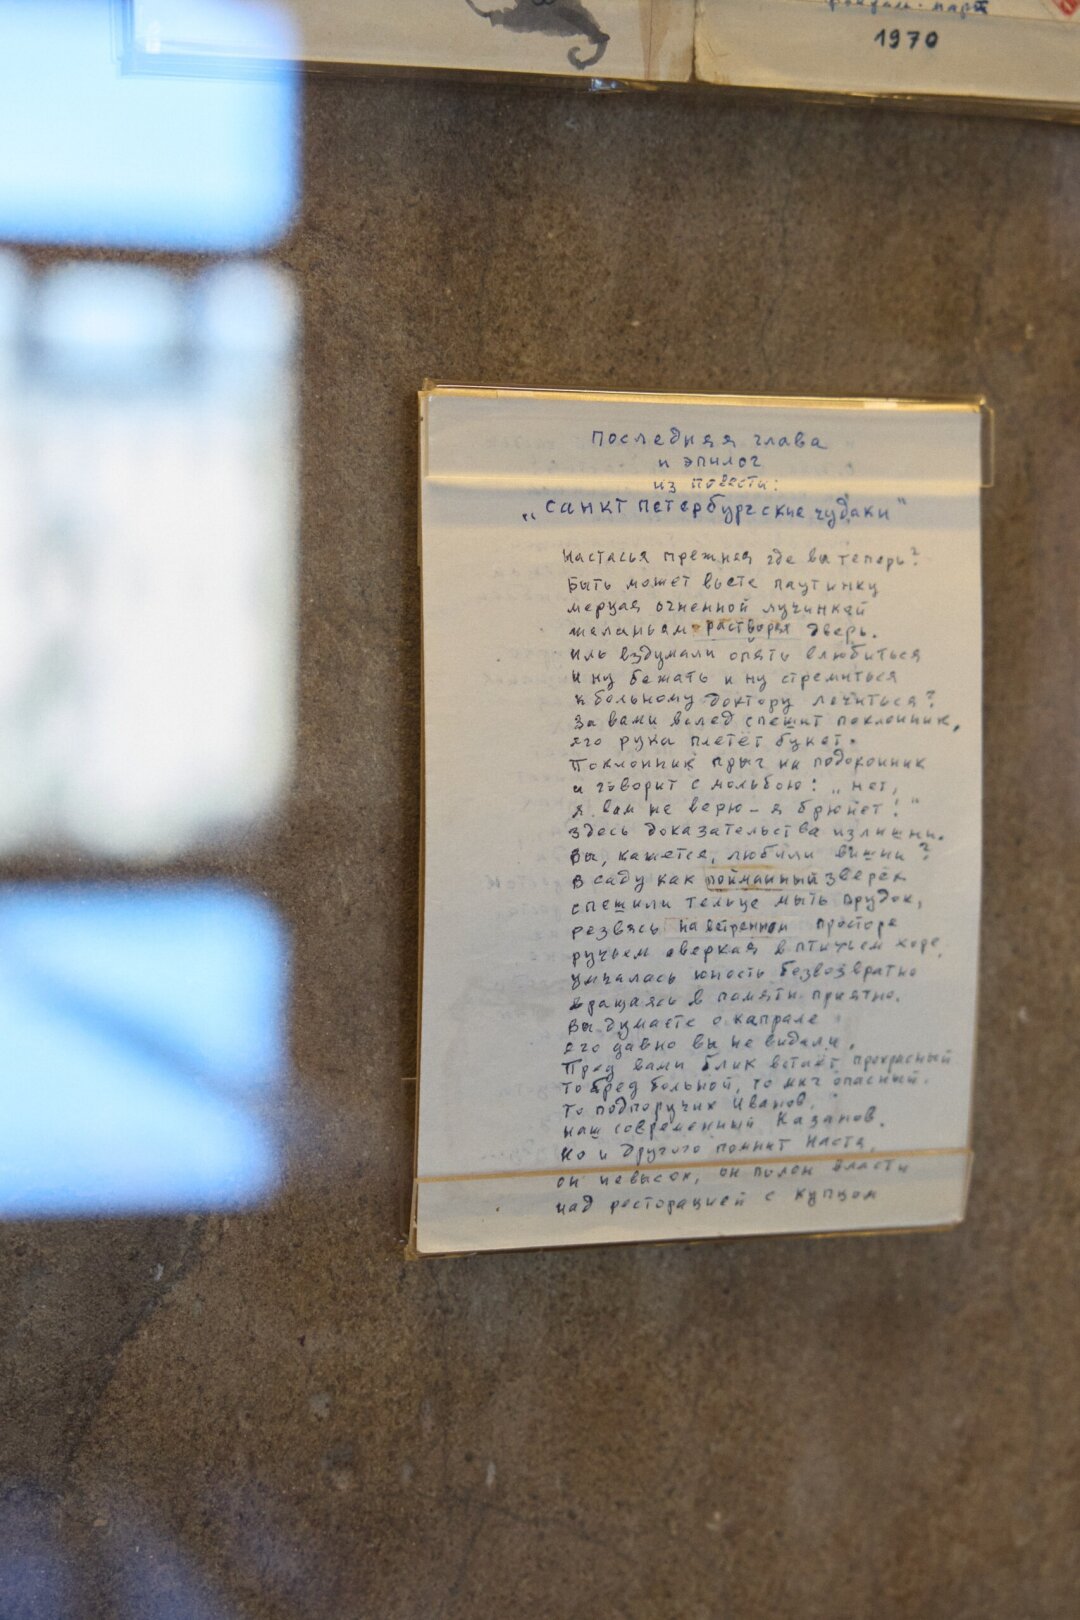 1970
Последняя глава
и эпилог
из повести:
„Санкт Петербургские чудаки"
Настасья прежняя где вы теперь?
Быть может вьете паутинку
мерцая огненной лучинкой
желаньям растворя дверь.
Иль вздумали опять влюбиться
и ну бежать и ну стремиться
к больному доктору лечиться?
За вами вслед спешит поклонник,
его рука плетёт букет.
Поклонник прыг на подоконник
и говорит с мольбою: „нет,
я вам не верю – я брюнет!"
Здесь доказательства излишни.
Вы, кажется, любили вишни?
В саду как пойманный зверёк
спешили тельце мыть
резвясь на ветренном просторе
ручьем сверкая в птичьем хоре.
умчалась юность безвозвратно
вращаясь в памяти приятно.
Вы думаете о капрале
его давно вы не видали.
Пред вами блик встаёт прекрасный
то бред больной, то миг опасный.
То подпоручик Иванов,
наш современный Казанов.
Но и другого помнит Настя,
он невысок, он полон власти
над ресторацией с купцом